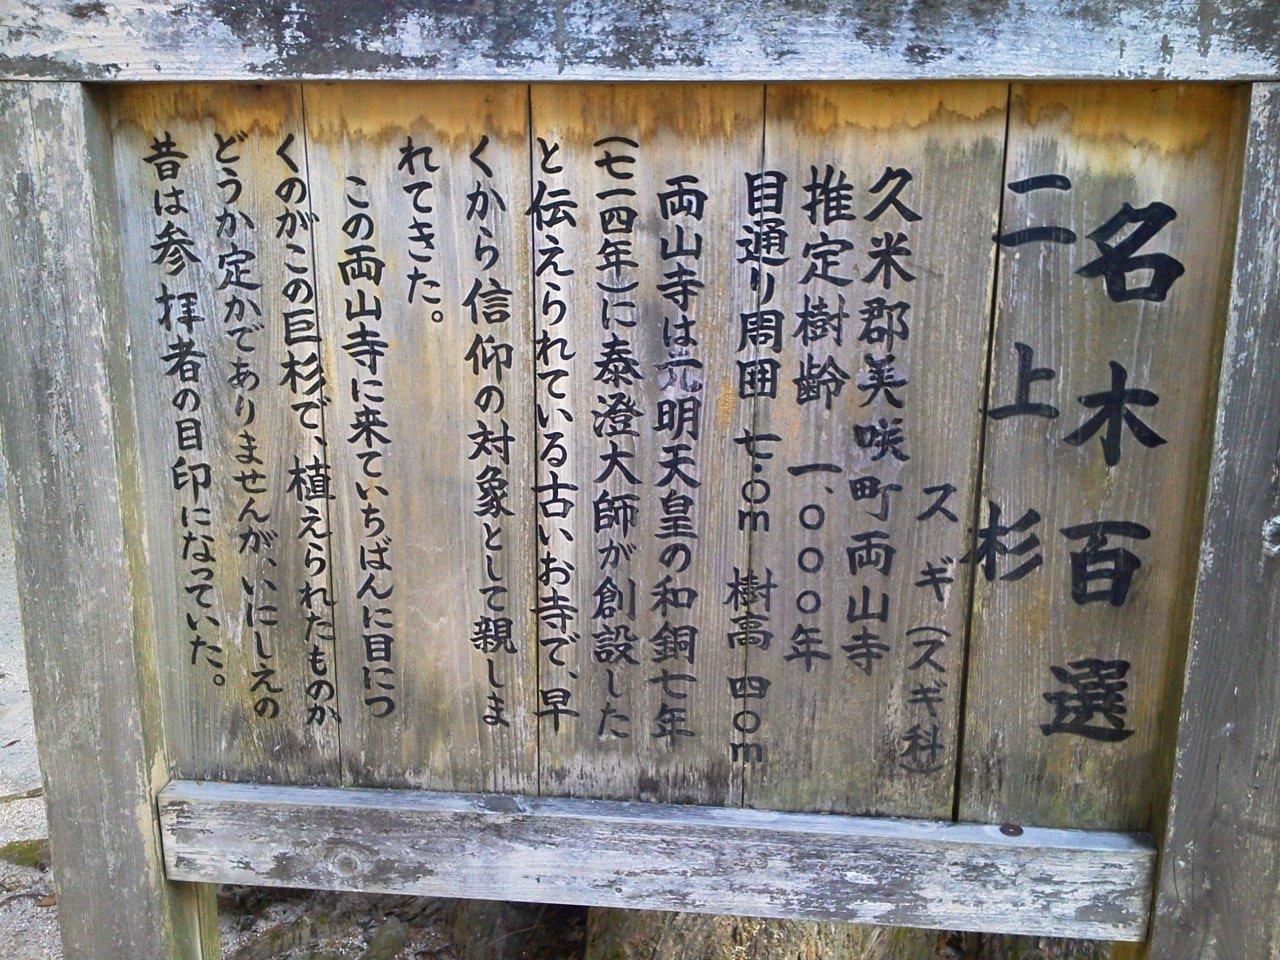 名木百選
二上杉
スギ(スギ科)
久米郡美咲町両山寺
推定樹齢 一、〇〇〇年
目通り周囲 七.〇m 樹高 四〇m
両山寺は元明天皇の和銅七年
(七一四年)に泰澄大師が創設した
と伝えられている古いお寺で、早
くから信仰の対象として親しま
れてきた。
この両山寺に来ていちばんに目につ
くのがこの巨杉で、植えられたものか
どうか定かでありませんが、いにしえの
昔は参拝者の目印になっていた。